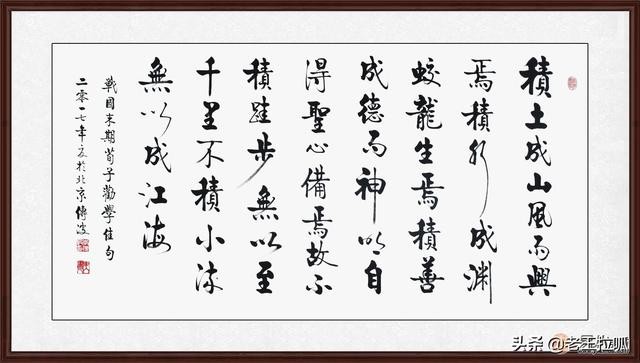 積土成山風雨興
焉積水成渊
蛟龍生焉積善
成德而神明自
得聖心備焉故不
積跬步無以至
千里不積小流
無以成江海
戰国末期荀子勸學佳句
二零一七年於北京
头条 @老王拉呱